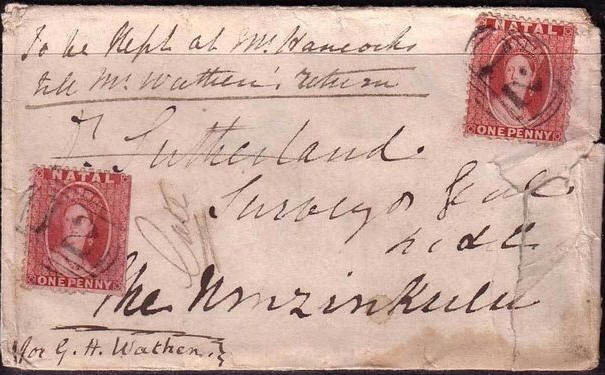 To be Kept at Mr. Hancocks
till Mr. Wathen's return
NATAL
ONE PENNY
Dr Sutherland
Surveyor Genl.
NATAL
ONE PENNY
Late
The Umzinkulu
for G. H. Wathen